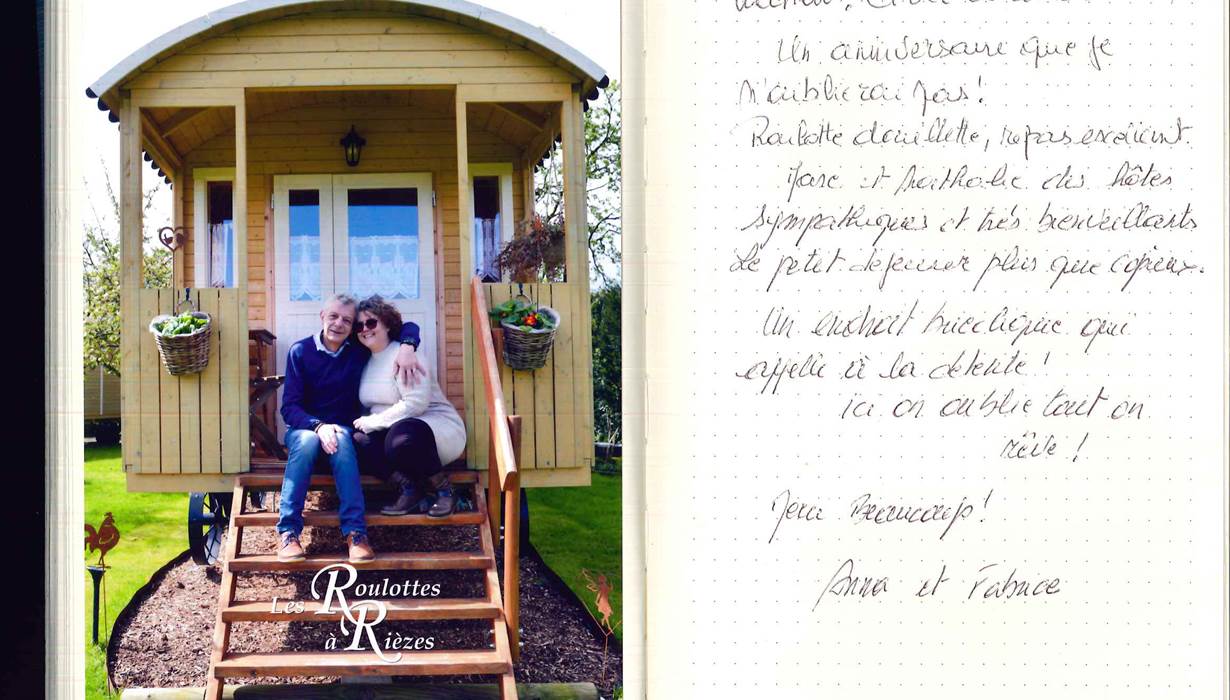 Les Roulottes
à Rièzes
Un anniversaire que je
n'oublierai pas!
Roulotte douillette, repas excellent.
Marc et Nathalie des hôtes
sympathiques et très bienveillants
Le petit dejeuner plus que copieux.
Un endroit bucolique qui
appelle à la détente!
ici on oublie tout on
rêve!
Merci Beaucoup!
Anna et Fabrice